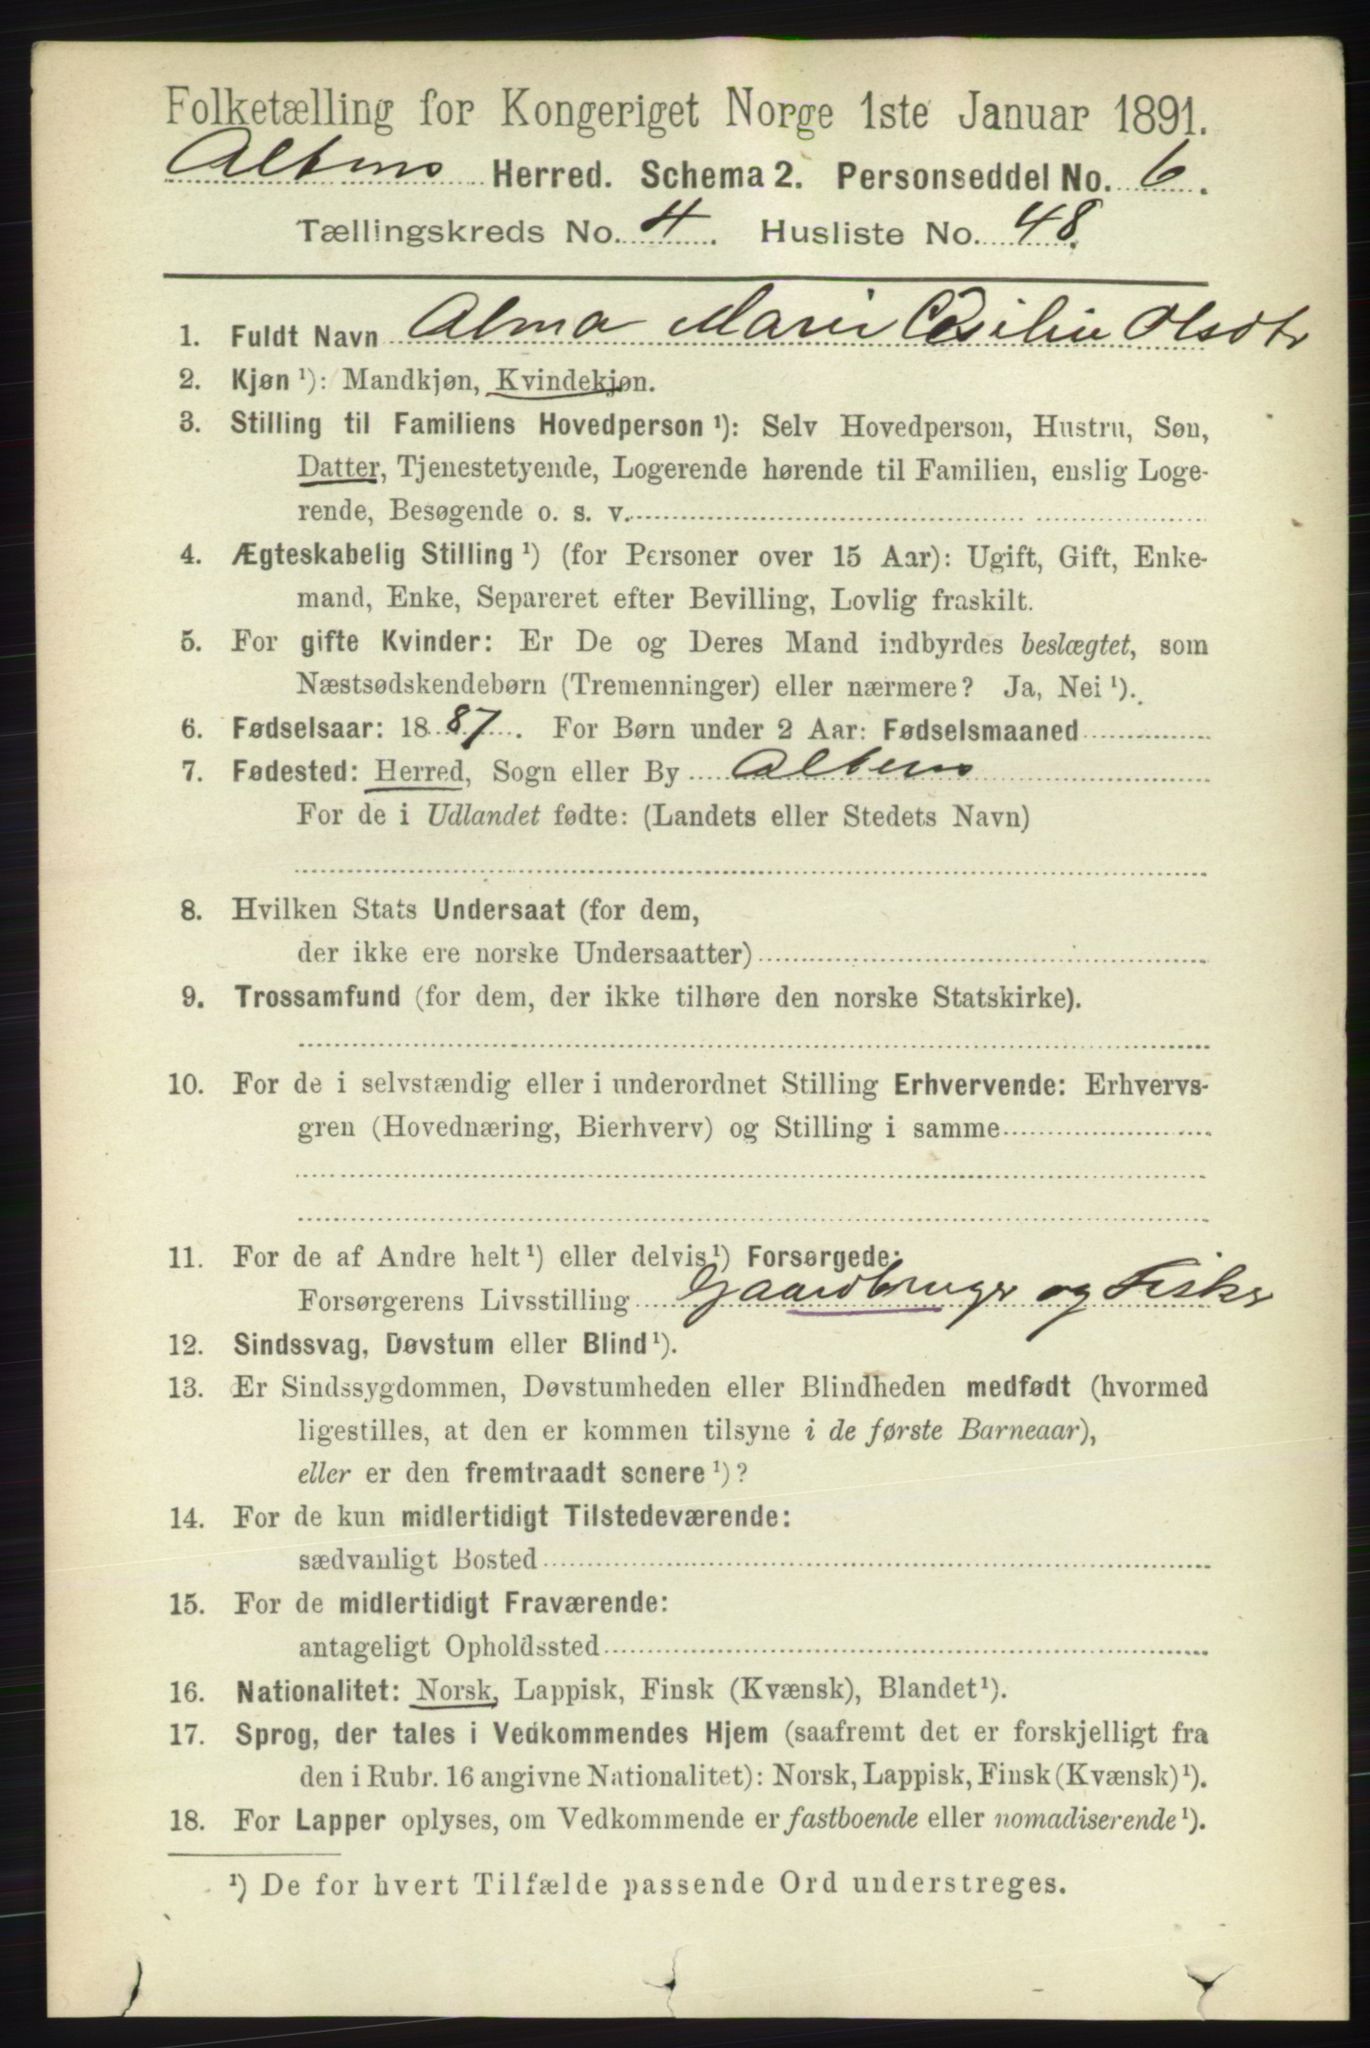 Folketælling for Kongeriget Norge 1ste Januar 1891.
Altens Herred. Schema 2. Personseddel No. 6.
Tællingskreds No. 4. Husliste No. 48.
1. Fuldt Navn Alma Marie Cesilie Olsdtr
2. Kjøn ¹): Mandkjøn, Kvindekjøn.
3. Stilling til Familiens Hovedperson ¹): Selv Hovedperson, Hustru, Søn,
Datter, Tjenestetyende, Logerende hørende til Familien, enslig Loge-
rende, Besøgende o. s. v.
4. Ægteskabelig Stilling ¹) (for Personer over 15 Aar): Ugift, Gift, Enke-
mand, Enke, Separeret efter Bevilling, Lovlig fraskilt.
5. For gifte Kvinder: Er De og Deres Mand indbyrdes beslægtet, som
Næstsødskendebørn (Tremenninger) eller nærmere? Ja, Nei ¹).
6. Fødselsaar: 1887. For Børn under 2 Aar: Fødselsmaaned
7. Fødested: Herred, Sogn eller By Altens
For de i Udlandet fødte: (Landets eller Stedets Navn)
8. Hvilken Stats Undersaat (for dem,
der ikke ere norske Undersaatter)
9. Trossamfund (for dem, der ikke tilhøre den norske Statskirke).
10. For de i selvstændig eller i underordnet Stilling Erhvervende: Erhvervs-
gren (Hovednæring, Bierhverv) og Stilling i samme
11. For de af Andre helt ¹) eller delvis ¹) Forsørgede:
Forsørgerens Livsstilling Gaardbruger og Fisker
12. Sindssvag, Døvstum eller Blind ¹).
13. Er Sindssygdommen, Døvstumheden eller Blindheden medfødt (hvormed
ligestilles, at den er kommen tilsyne i de første Barneaar),
eller er den fremtraadt senere ¹)?
14. For de kun midlertidigt Tilstedeværende:
sædvanligt Bosted
15. For de midlertidigt Fraværende:
antageligt Opholdssted
16. Nationalitet: Norsk, Lappisk, Finsk (Kvænsk), Blandet ¹).
17. Sprog, der tales i Vedkommendes Hjem (saafremt det er forskjelligt fra
den i Rubr. 16 angivne Nationalitet): Norsk, Lappisk, Finsk (Kvænsk) ¹).
18. For Lapper oplyses, om Vedkommende er fastboende eller nomadiserende ¹).
¹) De for hvert Tilfælde passende Ord understreges.